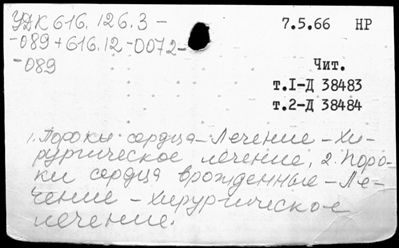 УДК 616.126.3 –
-089+616.12-0072-
-089
7.5.66 НР
Чит.
т.1-Д 38483
т.2-Д 38484
1. Пороки сердца – Лечение – Хи-
рургическое лечение, 2. Поро-
ки сердца врожденные – Ле-
чение – Хирургическое
лечение.